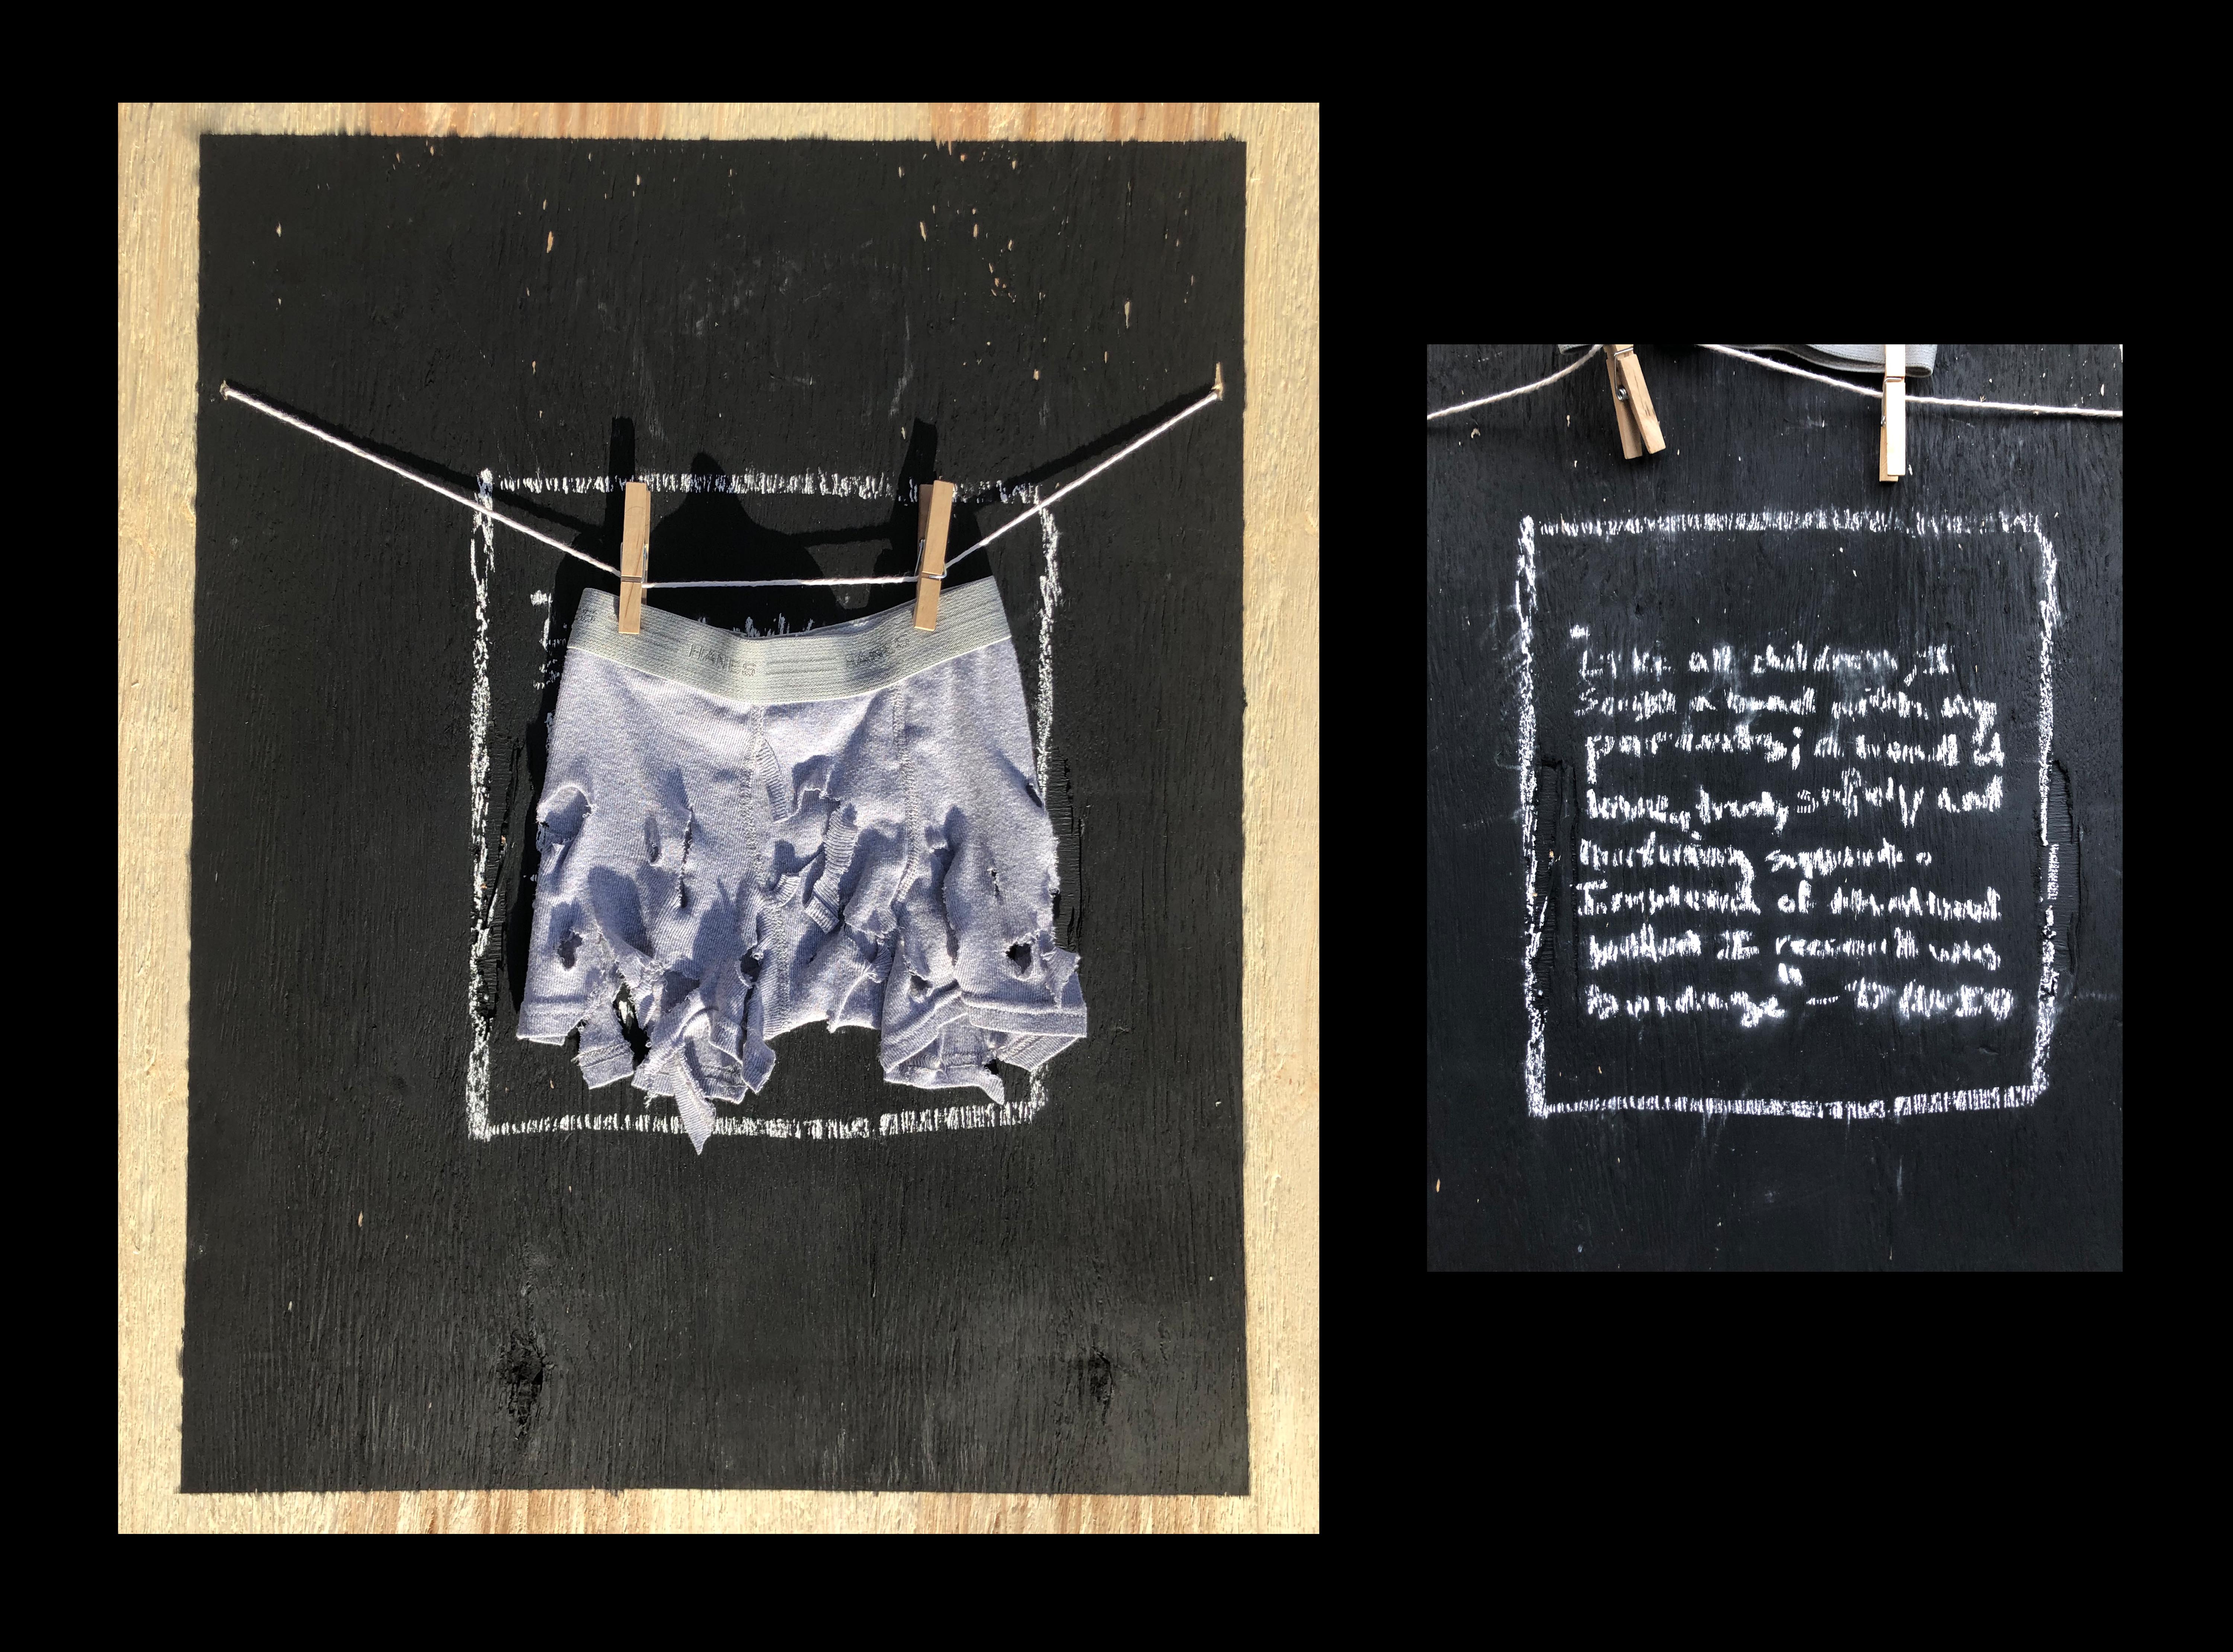 HANES HANES
"Like all children, I
sought a bond with my
parents; a bond of
love, trust, safety and
nurturing support.
Instead of
what I received was
bondage" —